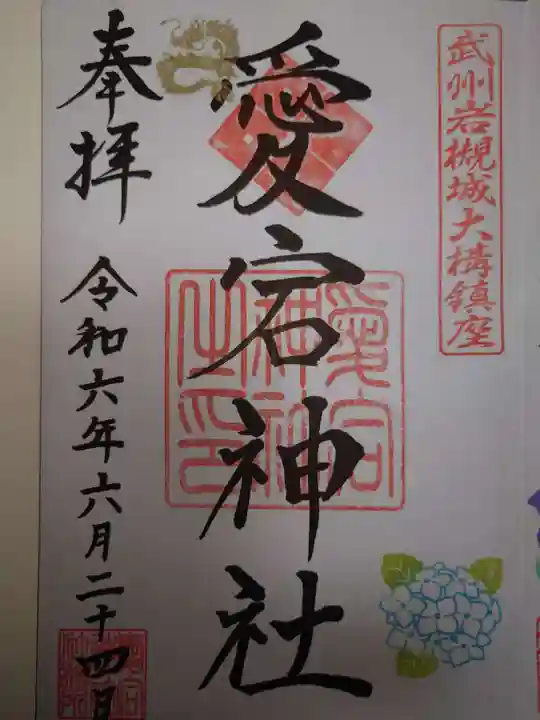 武州岩槻城大構鎮座
愛宕神社
愛宕神社之印
奉拝
令和六年六月二十四日